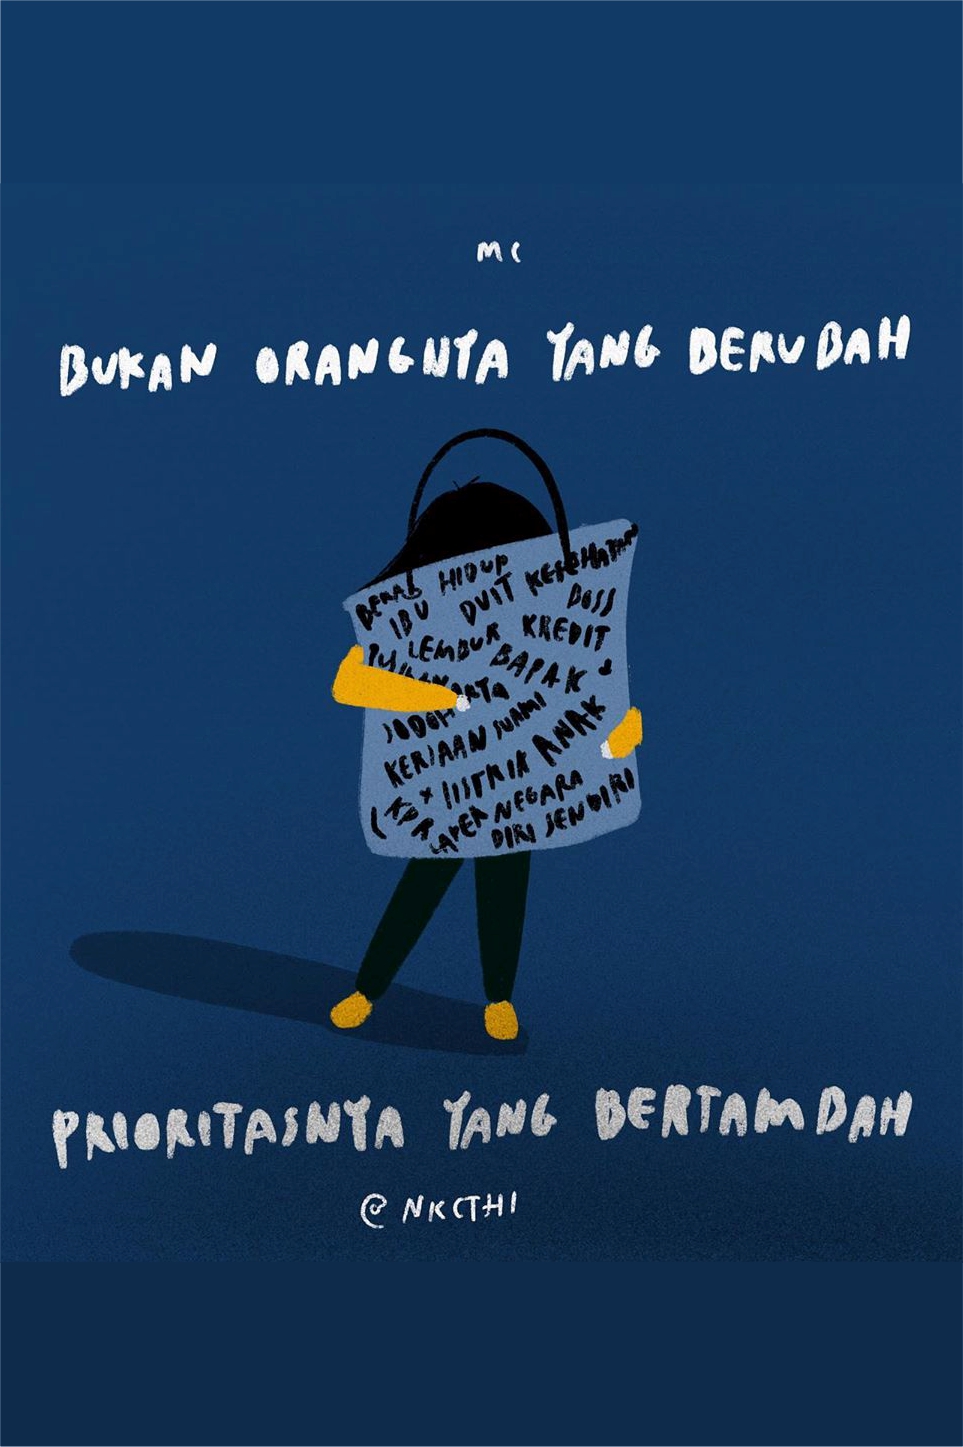 MC
BUKAN ORANGNYA YANG BERUBAH
BERAS HIDUP KESEHATAN
IBU DUIT BOSS
LEMBUR KREDIT
BAPAK
JODOH SUAMI
KERJAAN ANAK
LISTRIK
KPR NEGARA
DIRI SENDIRI
PRIORITASNYA YANG BERTAMBAH
@NKCTHI